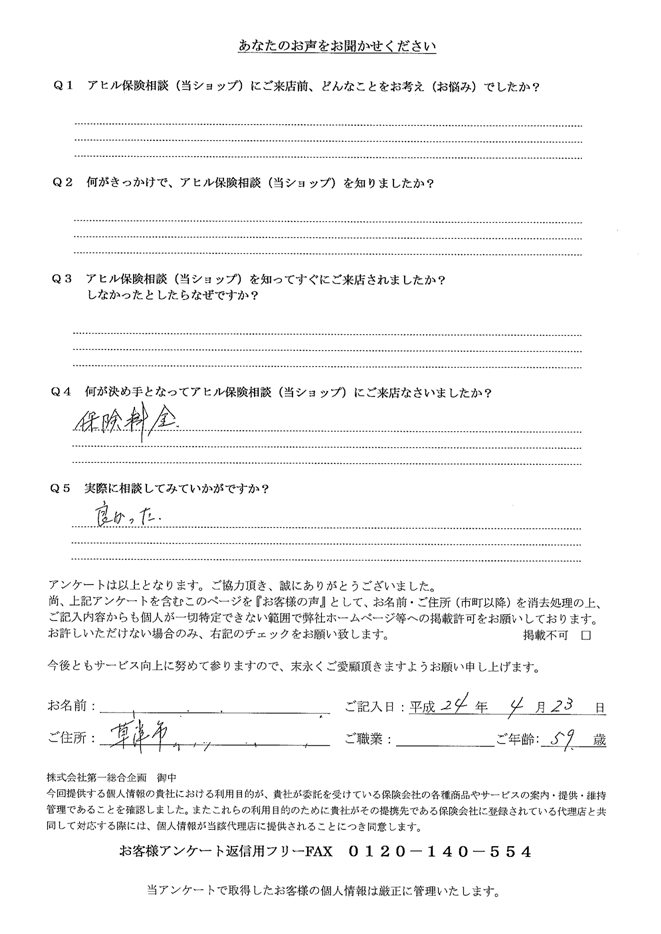 あなたのお声をお聞かせください
Q1 アヒル保険相談（当ショップ）にご来店前、どんなことをお考え（お悩み）でしたか？
Q2 何がきっかけで、アヒル保険相談（当ショップ）を知りましたか？
Q3 アヒル保険相談（当ショップ）を知ってすぐにご来店されましたか？
しなかったとしたらなぜですか？
Q4 何が決め手となってアヒル保険相談（当ショップ）にご来店なさいましたか？
保険料金.
Q5 実際に相談してみていかがですか？
良かった.
アンケートは以上となります。ご協力頂き、誠にありがとうございました。
尚、上記アンケートを含むこのページを『お客様の声』として、お名前・ご住所（市町以降）を消去処理の上、
ご記入内容からも個人が一切特定できない範囲で弊社ホームページ等への掲載許可をお願いしております。
お許しいただけない場合のみ、右記のチェックをお願い致します。 掲載不可 □
今後ともサービス向上に努めて参りますので、末永くご愛顧頂きますようお願い申し上げます。
お名前： ご記入日：平成 24 年 4 月 23 日
ご住所： 草津市 ご職業： ご年齢： 59 歳
株式会社第一総合企画 御中
今回提供する個人情報の貴社における利用目的が、貴社が委託を受けている保険会社の各種商品やサービスの案内・提供・維持
管理であることを確認しました。またこれらの利用目的のために貴社がその提携先である保険会社に登録されている代理店と共
同して対応する際には、個人情報が当該代理店に提供されることにつき同意します。
お客様アンケート返信用フリーFAX 0120−140−554
当アンケートで取得したお客様の個人情報は厳正に管理いたします。